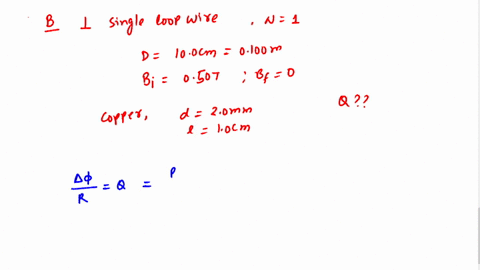 B ⊥ single loop wire , N = 1
D = 10.0cm = 0.100m
Bi = 0.507 ; Bf = 0
Copper, d = 2.0mm
Q ??
l = 1.0cm
Δφ/R = Q = P